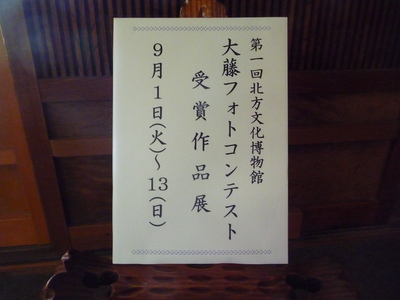 第一回北方文化博物館
大藤フォトコンテスト
受賞作品展
9月1日(火)〜13(日)